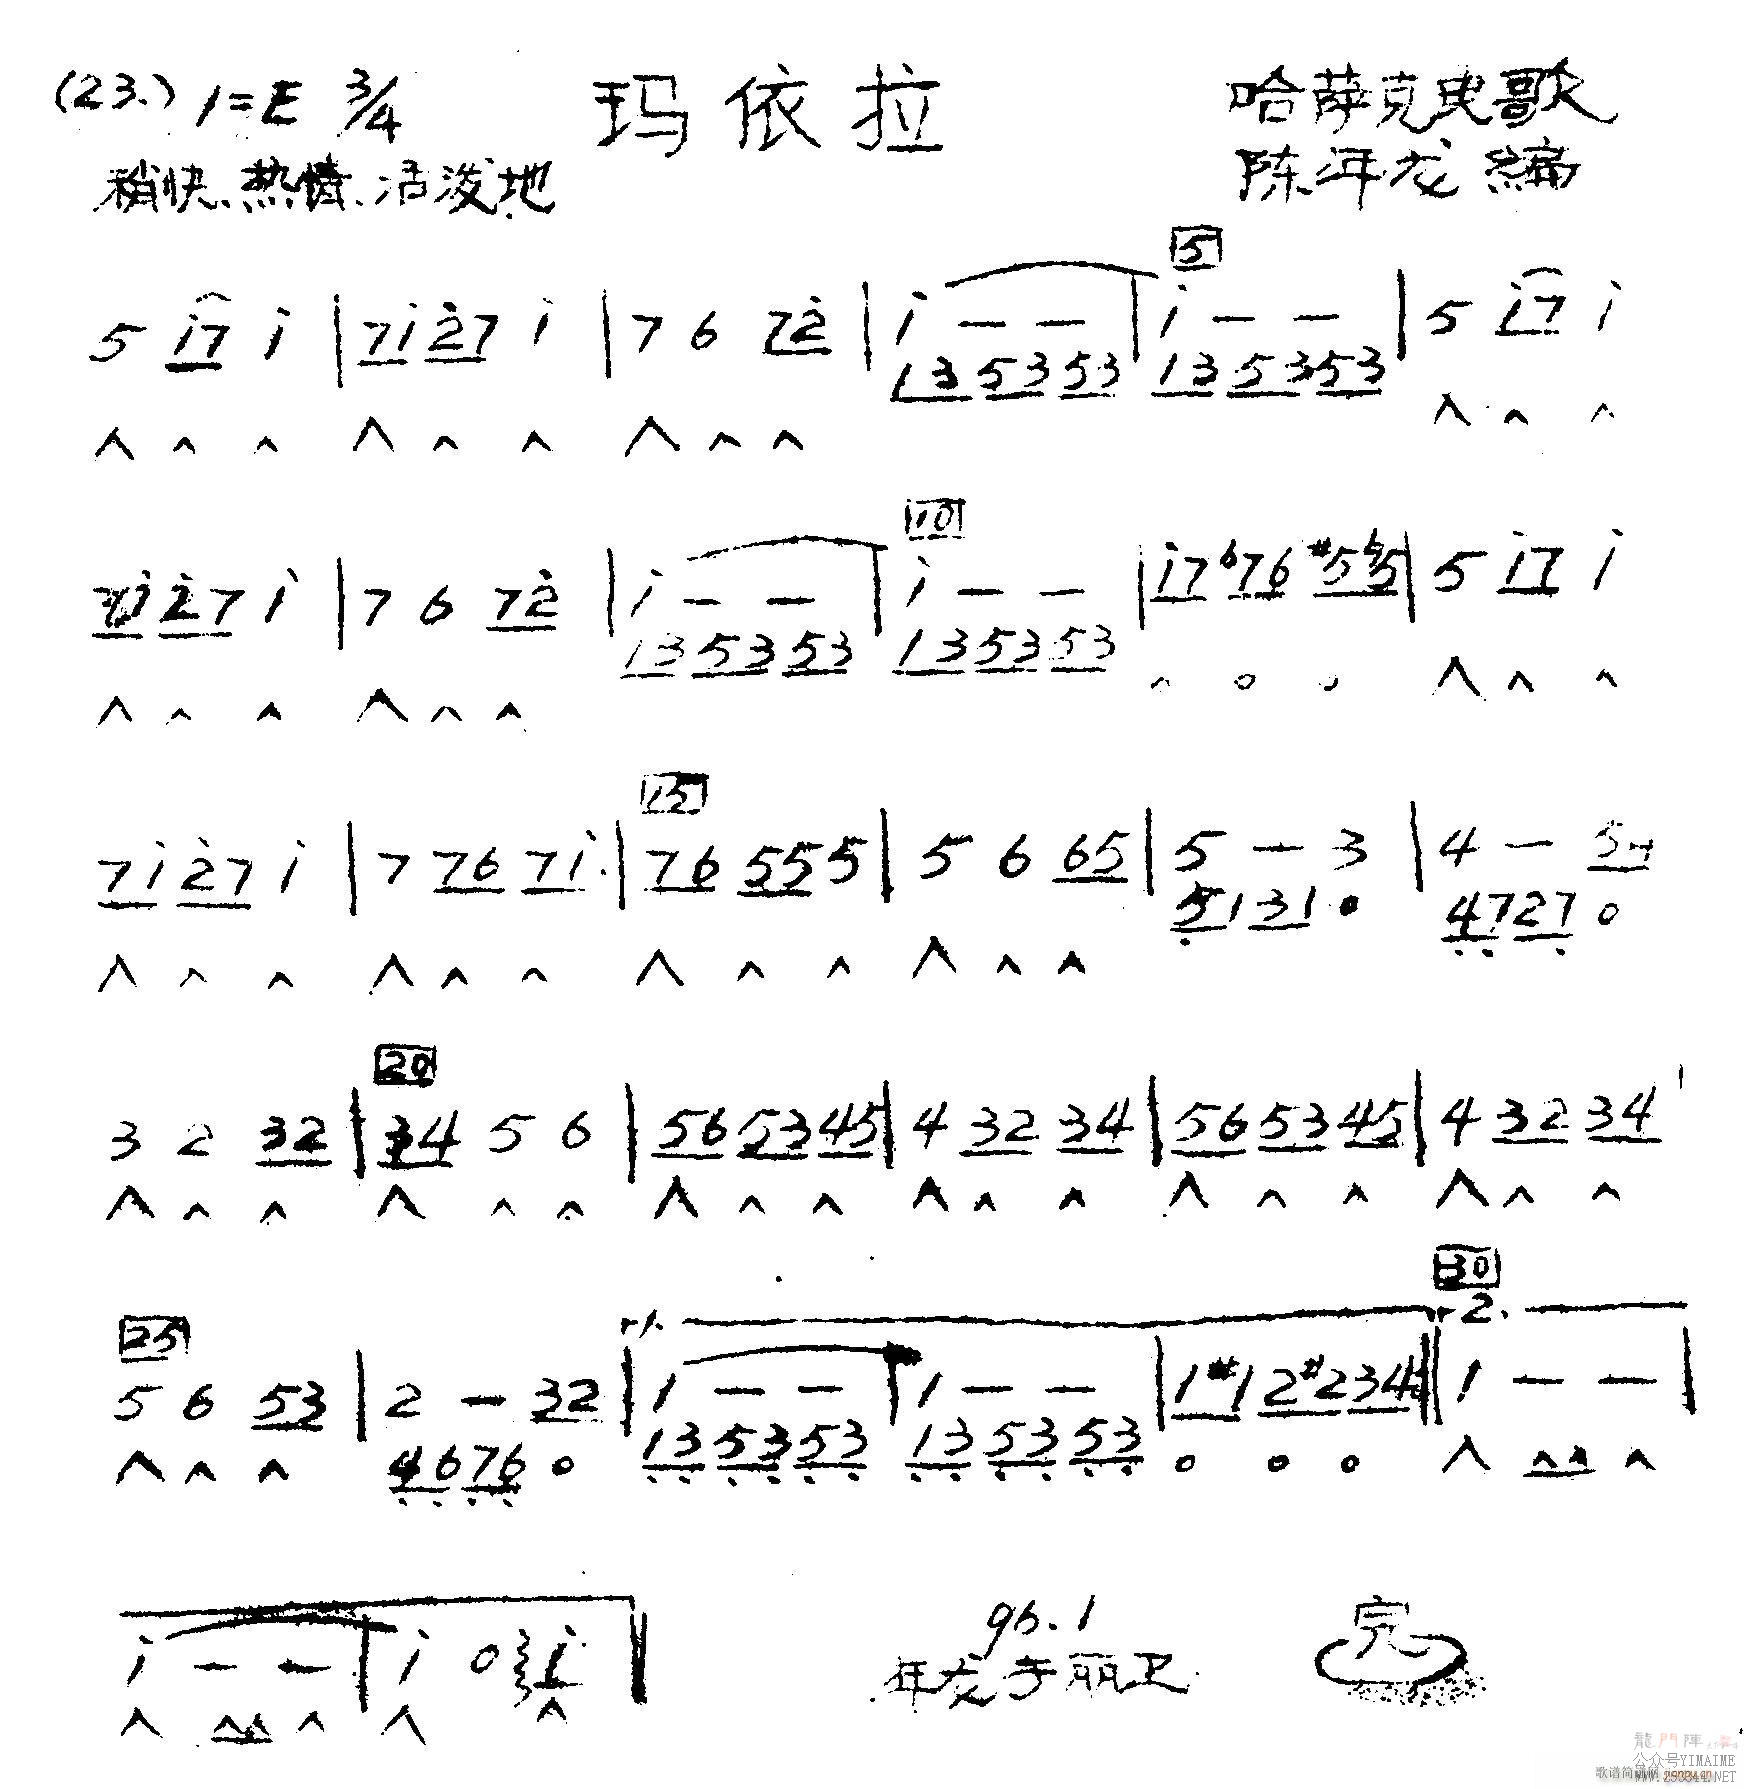 (23.) 1=E 3/4 玛依拉 哈萨克民歌
稍快、热情、活泼地 陈年龙 编
5
5 i̇7 i̇ | 7i̇ 2̇7 i̇ | 7 6 72̇ | i̇ — — | i̇ — — | 5 i̇7 i̇
13 53 53 13 53 53
∧ ∧ ∧ ∧ ∧ ∧ ∧ ∧ ∧ ∧ ∧ ∧
10
7i̇ 2̇7 i̇ | 7 6 72̇ | i̇ — — | i̇ — — | i̇7 b76 #5b5 | 5 i̇7 i̇
13 53 53 13 53 53
∧ ∧ ∧ ∧ ∧ ∧ ∧ 0 0 ∧ ∧ ∧
15
7i̇ 2̇7 i̇ | 7 76 7i̇ | 76 55 5 | 5 6 65 | 5 — 3 | 4 — 54
51 31 0 47 27 0
∧ ∧ ∧ ∧ ∧ ∧ ∧ ∧ ∧ ∧ ∧ ∧
20
3 2 32 | 34 5 6 | 56 53 45 | 4 32 34 | 56 53 45 | 4 32 34
∧ ∧ ∧ ∧ ∧ ∧ ∧ ∧ ∧ ∧ ∧ ∧ ∧ ∧ ∧ ∧ ∧ ∧
30
25 1. 2.
5 6 53 | 2 — 32 | 1 — — | 1 — — | 1#1 2#2 34 :|| 1 — — |
∧ ∧ ∧ 46 76 0 13 53 53 13 53 53 0 0 0 ∧ ∧∧ ∧
i̇ — — | i̇ 0 i̇ ||
∧ ∧∧ ∧ ∧ ∧
96.1
年龙于丽卫
完
龍門陣
公众号YIMAIME
歌谱简谱网
www.250344.NET